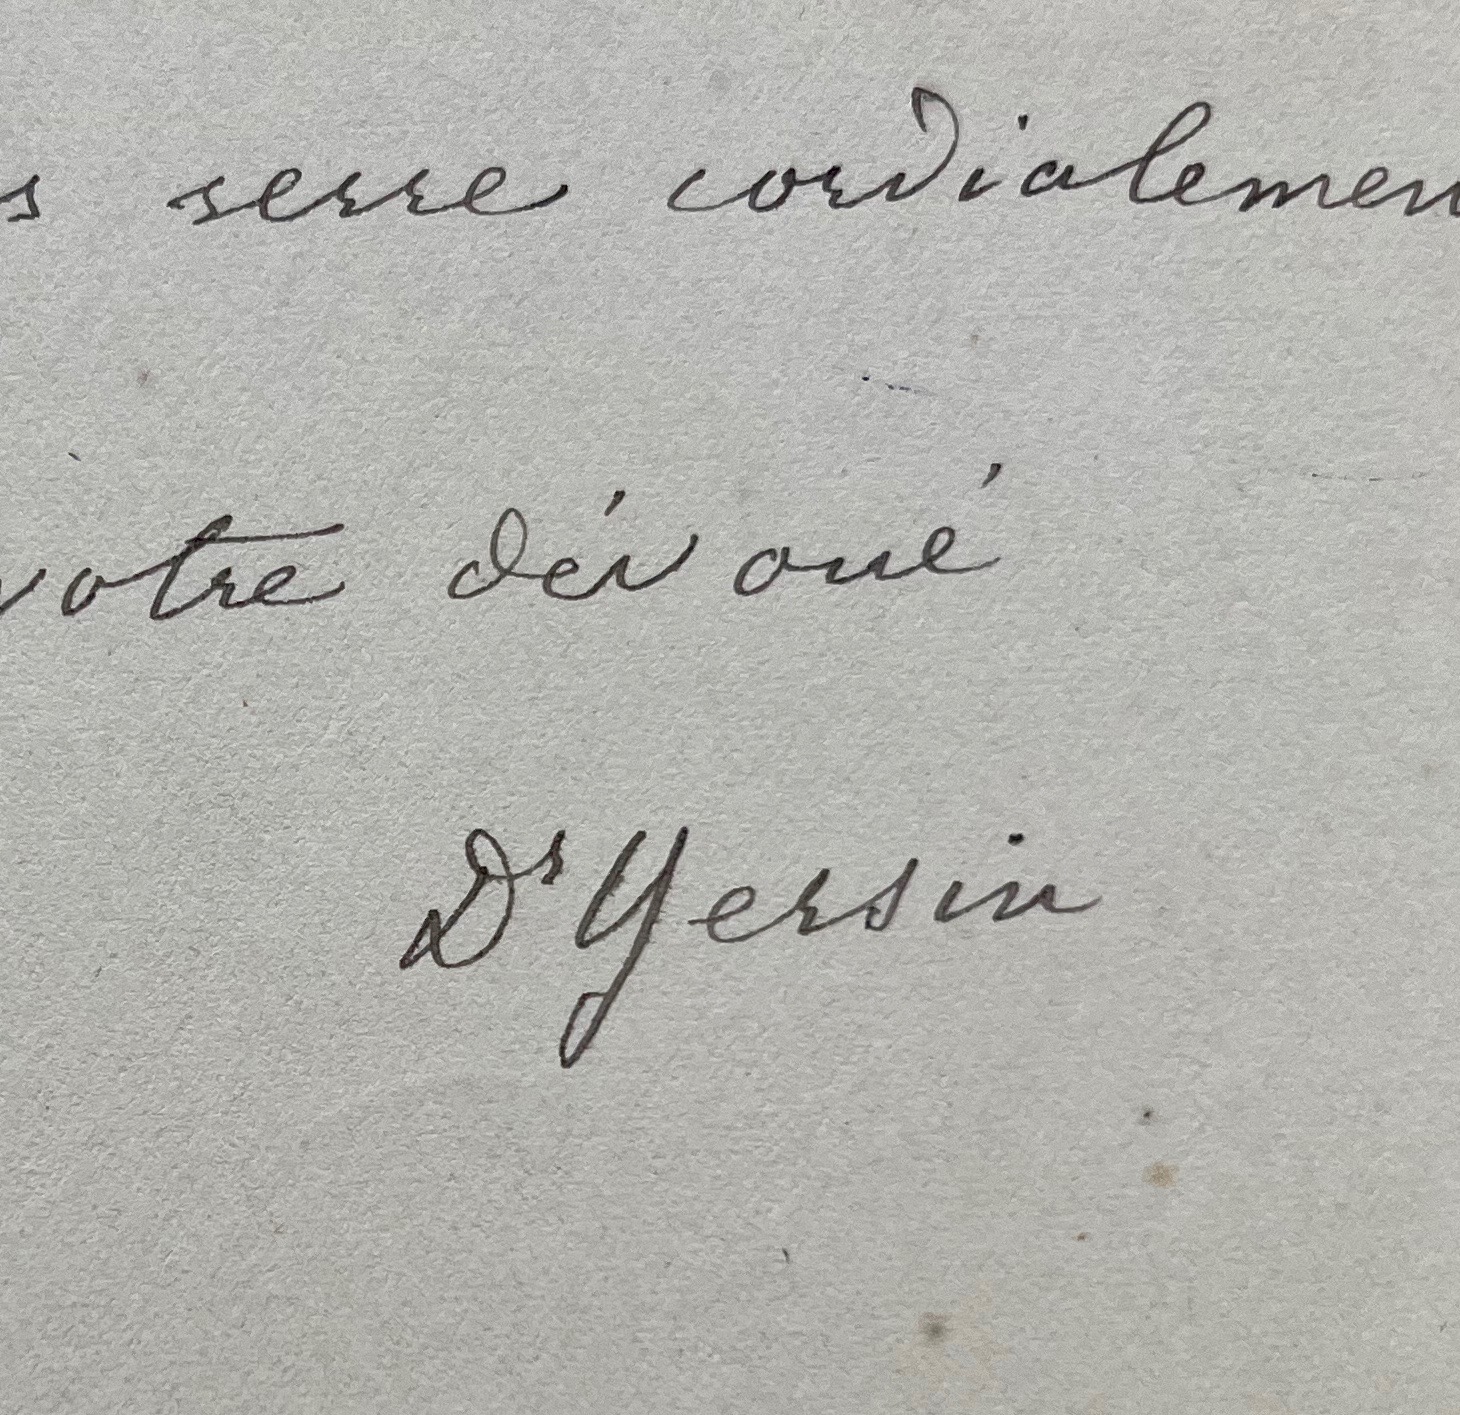 s serre cordialemen
votre dévoué
Dr Yersin